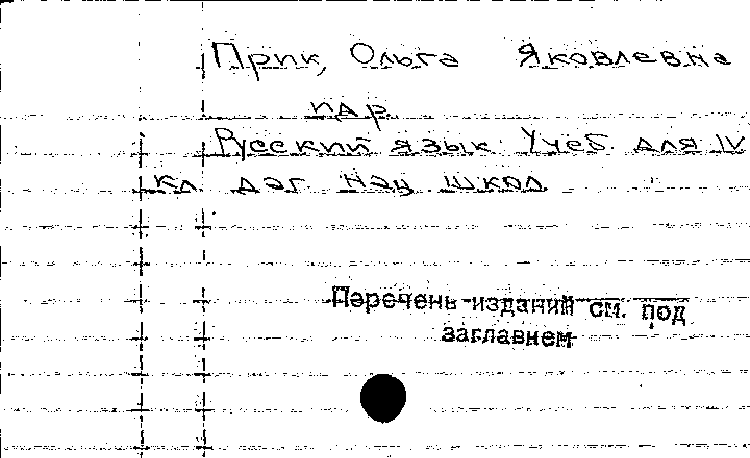 Прик, Ольга Яковлевна
пар.
Русский язык. Учеб. для IV
кл. даг. нац. школ.
Перечень изданий см. под
заглавием